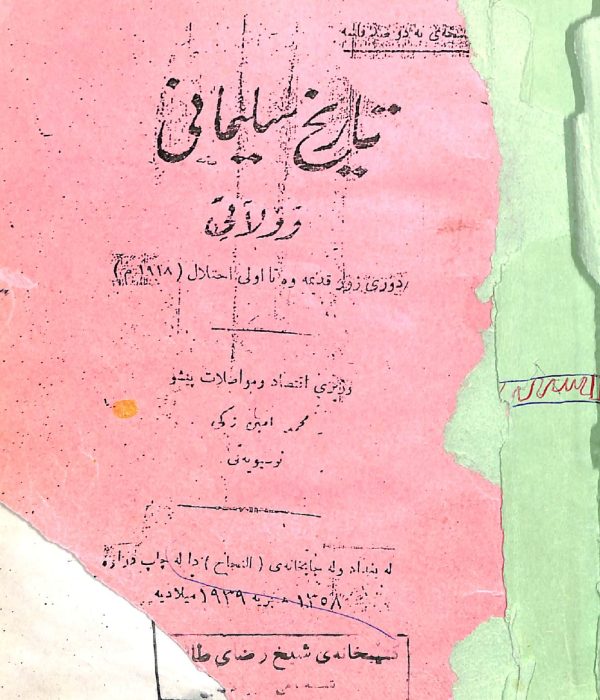 تاریخ سلیمانی
وولاتی
دوری زور قدیمه وه تا اولی احتلال (١٩١٨ م)
وزیری اقتصاد ومواصلات پیشو
محمد امین زکی
نوسیویه‌تی
له بغداد وله چاپخانه‌ی (النجاح) دا له چاپ دراوه
١٣٥٨ هجریه ١٩٣٩ میلادیه
کتبخانه‌ی شیخ رضای